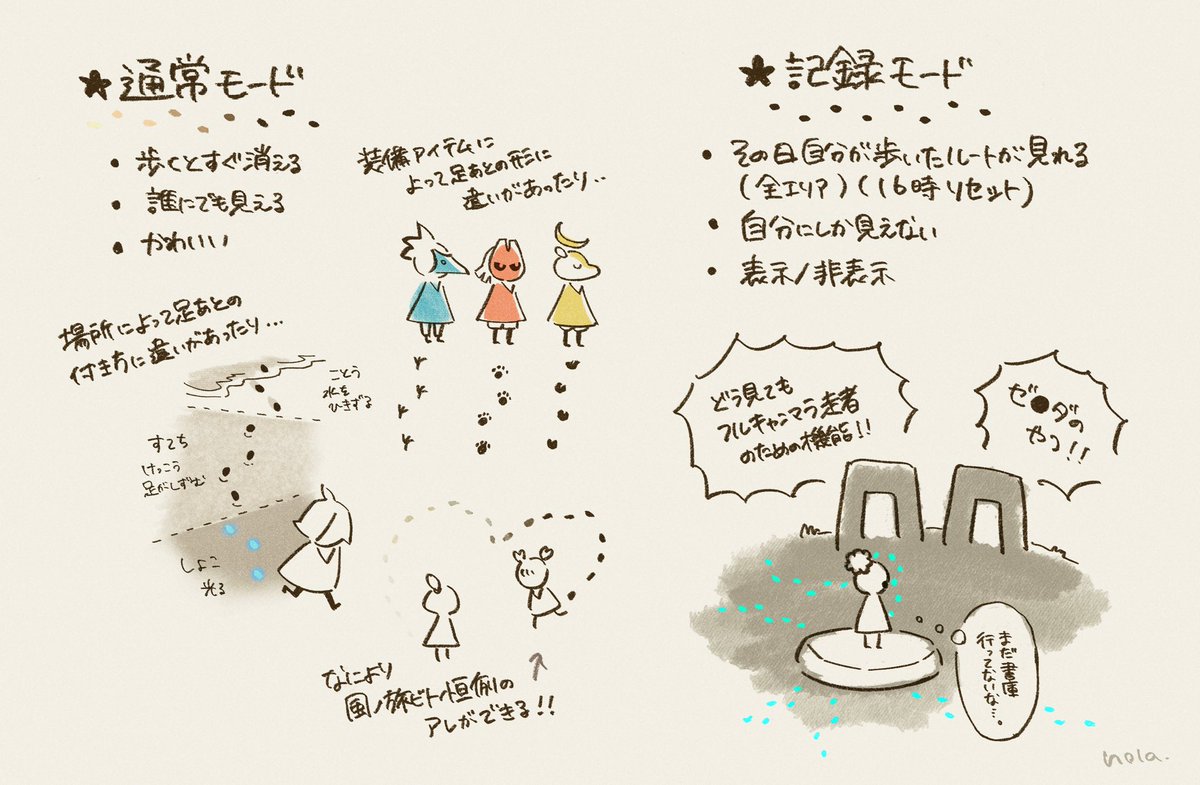 ★通常モード
• 歩くとすぐ消える
• 誰にでも見える
• かわいい
装備アイテムに
よって足あとの形に
違いがあったり‥
場所によって足あとの
付き方に違いがあったり…
ことう
水を
ひきずる
すてち
けっこう
足がしずむ
しょこ
光る
なにより
風ノ旅ビト恒例の
アレができる!!
★記録モード
• その日自分が歩いたルートが見れる
(全エリア)(16時リセット)
• 自分にしか見えない
• 表示/非表示
どう見ても
フルキャンマラ走者
のための機能!!
ゼ●ダの
やつ!!
まだ書庫
行ってないな…。
nola.